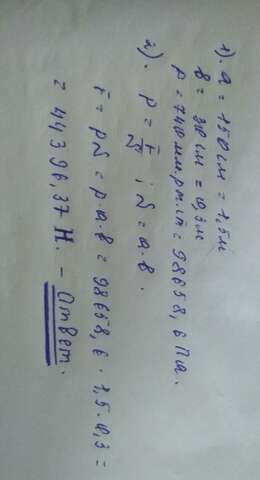 1). a = 150см = 1,5м
b = 30см = 0,3м
p = 740мм.рт.ст = 98658,6 Па.
2). p = F/S ; S = a·b.
F = pS = p·a·b = 98658,6 · 1,5 · 0,3 =
= 44396,37 Н. - Ответ.